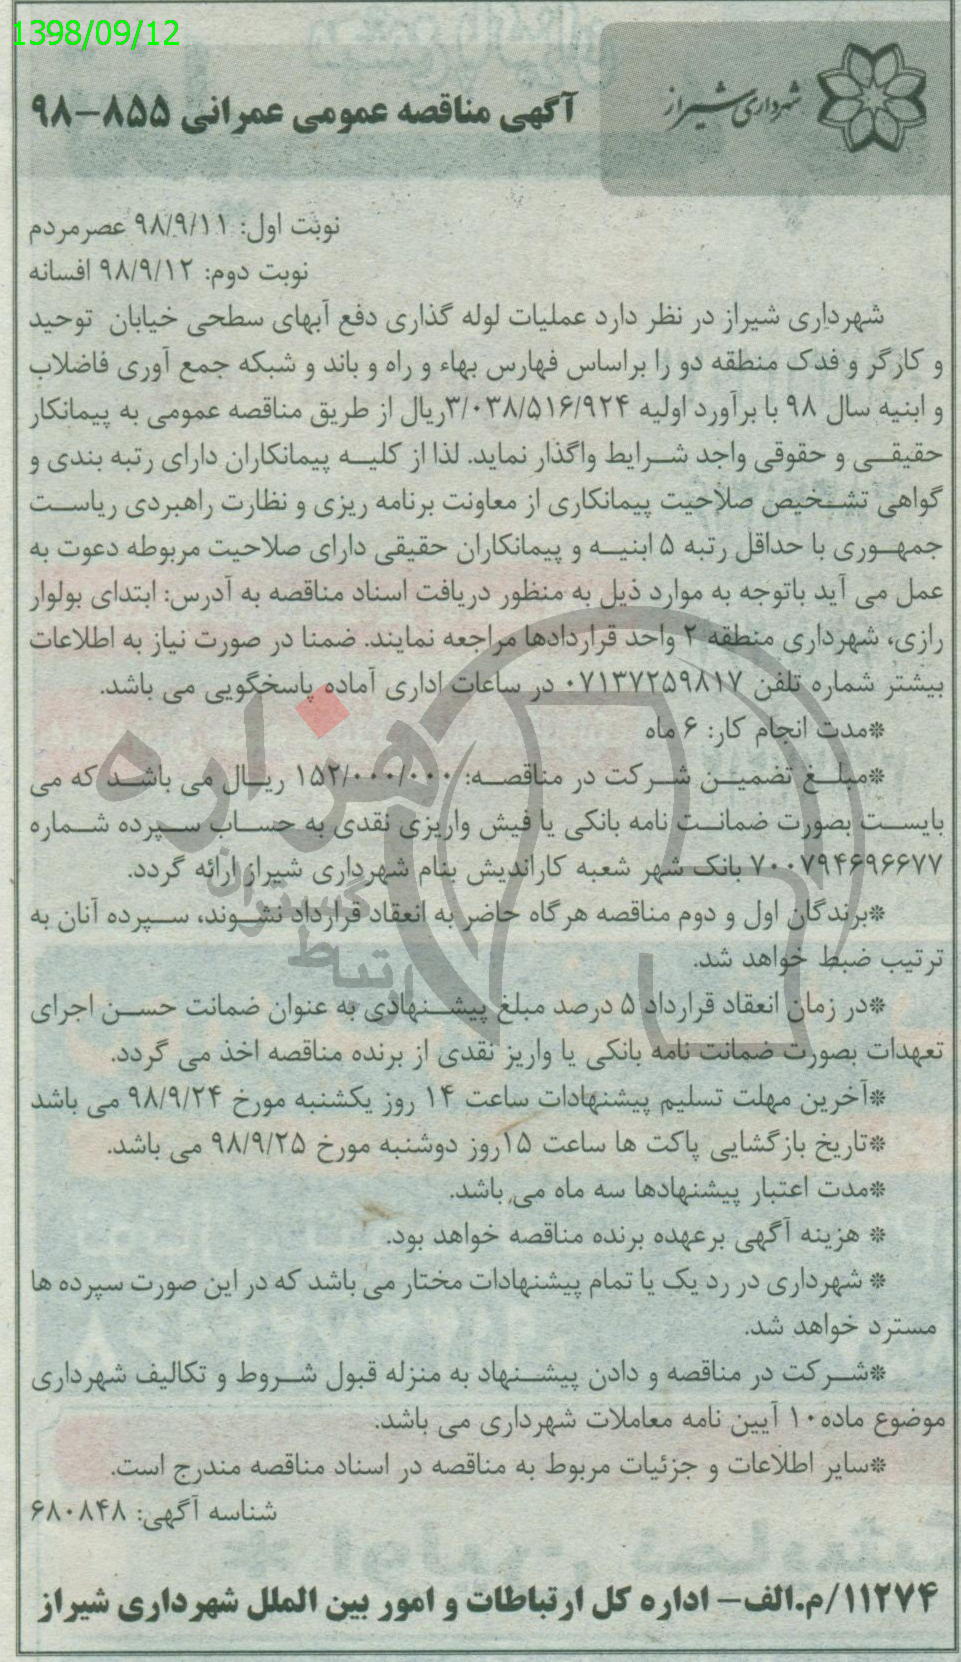 1398/09/12
شهرداری شیراز
آگهی مناقصه عمومی عمرانی ۸۵۵-۹۸
نوبت اول: ۹۸/۹/۱۱ عصرمردم
نوبت دوم: ۹۸/۹/۱۲ افسانه
شهرداری شیراز در نظر دارد عملیات لوله گذاری دفع آبهای سطحی خیابان توحید
و کارگر و فدک منطقه دو را براساس فهارس بهاء و راه و باند و شبکه جمع آوری فاضلاب
و ابنیه سال ۹۸ با برآورد اولیه ۳/۰۳۸/۵۱۶/۹۲۴ریال از طریق مناقصه عمومی به پیمانکار
حقیقی و حقوقی واجد شرایط واگذار نماید. لذا از کلیه پیمانکاران دارای رتبه بندی و
گواهی تشخیص صلاحیت پیمانکاری از معاونت برنامه ریزی و نظارت راهبردی ریاست
جمهوری با حداقل رتبه ۵ ابنیه و پیمانکاران حقیقی دارای صلاحیت مربوطه دعوت به
عمل می آید باتوجه به موارد ذیل به منظور دریافت اسناد مناقصه به آدرس: ابتدای بولوار
رازی، شهرداری منطقه ۲ واحد قراردادها مراجعه نمایند. ضمنا در صورت نیاز به اطلاعات
بیشتر شماره تلفن ۰۷۱۳۷۲۵۹۸۱۷ در ساعات اداری آماده پاسخگویی می باشد.
*مدت انجام کار: ۶ ماه
*مبلغ تضمین شرکت در مناقصه: ۱۵۲/۰۰۰/۰۰۰ ریال می باشد که می
بایست بصورت ضمانت نامه بانکی یا فیش واریزی نقدی به حساب سپرده شماره
۷۰۰۷۹۴۶۹۶۶۷۷ بانک شهر شعبه کاراندیش بنام شهرداری شیراز ارائه گردد.
*برندگان اول و دوم مناقصه هرگاه حاضر به انعقاد قرارداد نشوند، سپرده آنان به
ترتیب ضبط خواهد شد.
*در زمان انعقاد قرارداد ۵ درصد مبلغ پیشنهادی به عنوان ضمانت حسن اجرای
تعهدات بصورت ضمانت نامه بانکی یا واریز نقدی از برنده مناقصه اخذ می گردد.
*آخرین مهلت تسلیم پیشنهادات ساعت ۱۴ روز یکشنبه مورخ ۹۸/۹/۲۴ می باشد
*تاریخ بازگشایی پاکت ها ساعت ۱۵روز دوشنبه مورخ ۹۸/۹/۲۵ می باشد.
*مدت اعتبار پیشنهادها سه ماه می باشد.
* هزینه آگهی برعهده برنده مناقصه خواهد بود.
* شهرداری در رد یک یا تمام پیشنهادات مختار می باشد که در این صورت سپرده ها
مسترد خواهد شد.
*شرکت در مناقصه و دادن پیشنهاد به منزله قبول شروط و تکالیف شهرداری
موضوع ماده۱۰ آیین نامه معاملات شهرداری می باشد.
*سایر اطلاعات و جزئیات مربوط به مناقصه در اسناد مناقصه مندرج است.
شناسه آگهی: ۶۸۰۸۴۸
۱۱۲۷۴/م.الف- اداره کل ارتباطات و امور بین الملل شهرداری شیراز
هزاره
گستران
ارتباط